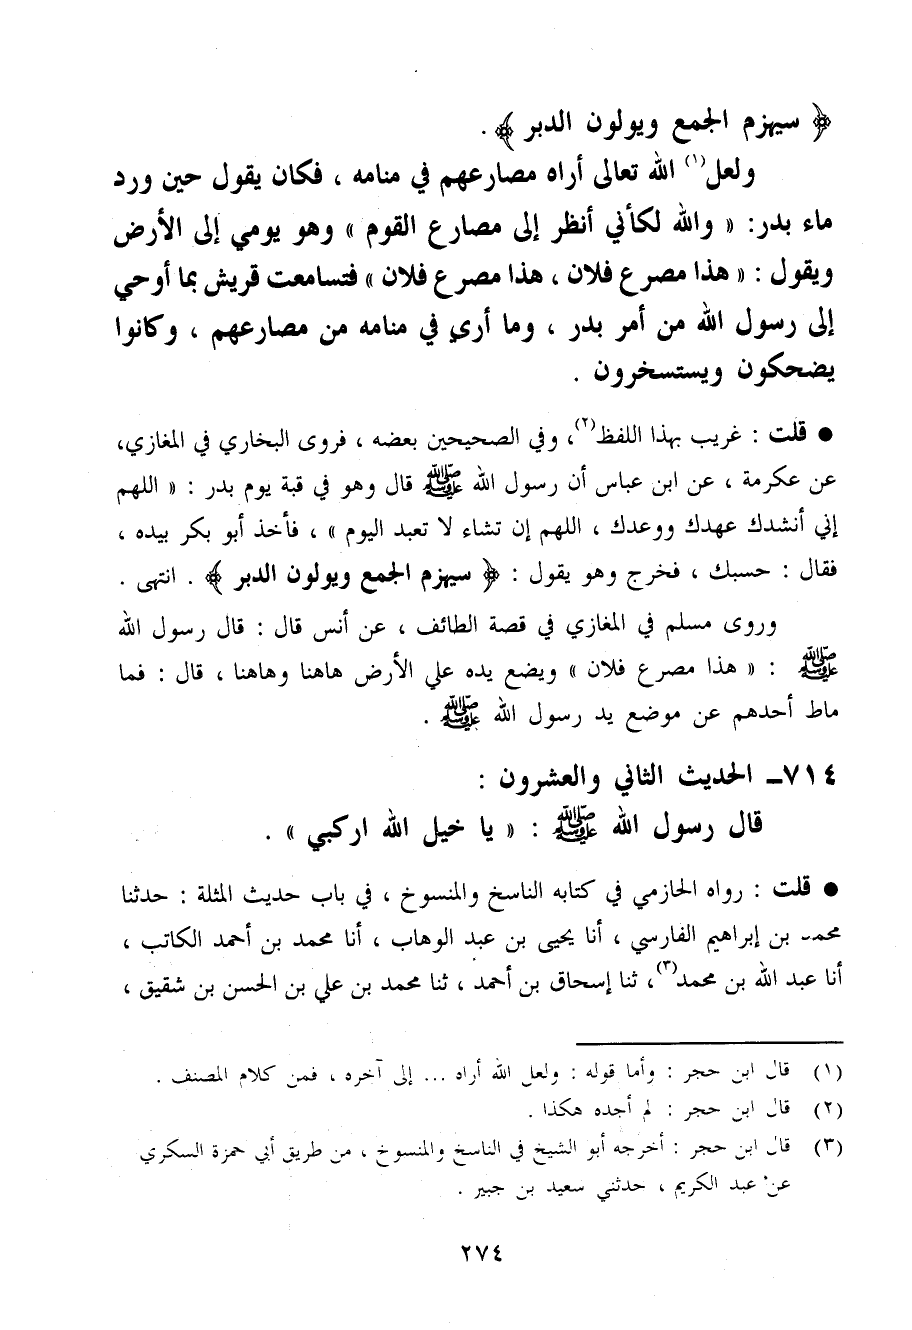 ﴿ سيهزم الجمع ويولون الدبر ﴾ .
ولعل(١) الله تعالى أراه مصارعهم في منامه ، فكان يقول حين ورد
ماء بدر: « والله لكأني أنظر إلى مصارع القوم » وهو يومي إلى الأرض
ويقول : « هذا مصرع فلان ، هذا مصرع فلان » فتسامعت قريش بما أوحي
إلى رسول الله من أمر بدر ، وما أري في منامه من مصارعهم ، وكانوا
يضحكون ويستسخرون .
● قلت : غريب بهذا اللفظ(٢)، وفي الصحيحين بعضه ، فروى البخاري في المغازي،
عن عكرمة ، عن ابن عباس أن رسول الله ﷺ قال وهو في قبة يوم بدر : « اللهم
إني أنشدك عهدك ووعدك ، اللهم إن تشاء لا تعبد اليوم » ، فأخذ أبو بكر بيده ،
فقال : حسبك ، فخرج وهو يقول : ﴿ سيهزم الجمع ويولون الدبر ﴾ . انتهى .
وروى مسلم في المغازي في قصة الطائف ، عن أنس قال : قال رسول الله
ﷺ : « هذا مصرع فلان » ويضع يده علي الأرض هاهنا وهاهنا ، قال : فما
ماط أحدهم عن موضع يد رسول الله ﷺ .
٧١٤ـ الحديث الثاني والعشرون :
قال رسول الله ﷺ : « يا خيل الله اركبي » .
● قلت : رواه الحازمي في كتابه الناسخ والمنسوخ ، في باب حديث المثلة : حدثنا
محمد بن إبراهيم الفارسي ، أنا يحيى بن عبد الوهاب ، أنا محمد بن أحمد الكاتب ،
أنا عبد الله بن محمد(٣)، ثنا إسحاق بن أحمد ، ثنا محمد بن علي بن الحسن بن شقيق ،
(١) قال ابن حجر : وأما قوله : ولعل الله أراه ... إلى آخره ، فمن كلام المصنف .
(٢) قال ابن حجر : لم أجده هكذا .
(٣) قال ابن حجر : أخرجه أبو الشيخ في الناسخ والمنسوخ ، من طريق أبي حمزة السكري
عن عبد الكريم ، حدثني سعيد بن جبير .
٢٧٤